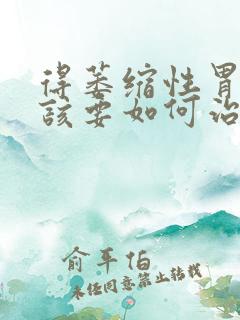 得萎缩性胃
该要如何治
俞平伯
未经同意禁止转载